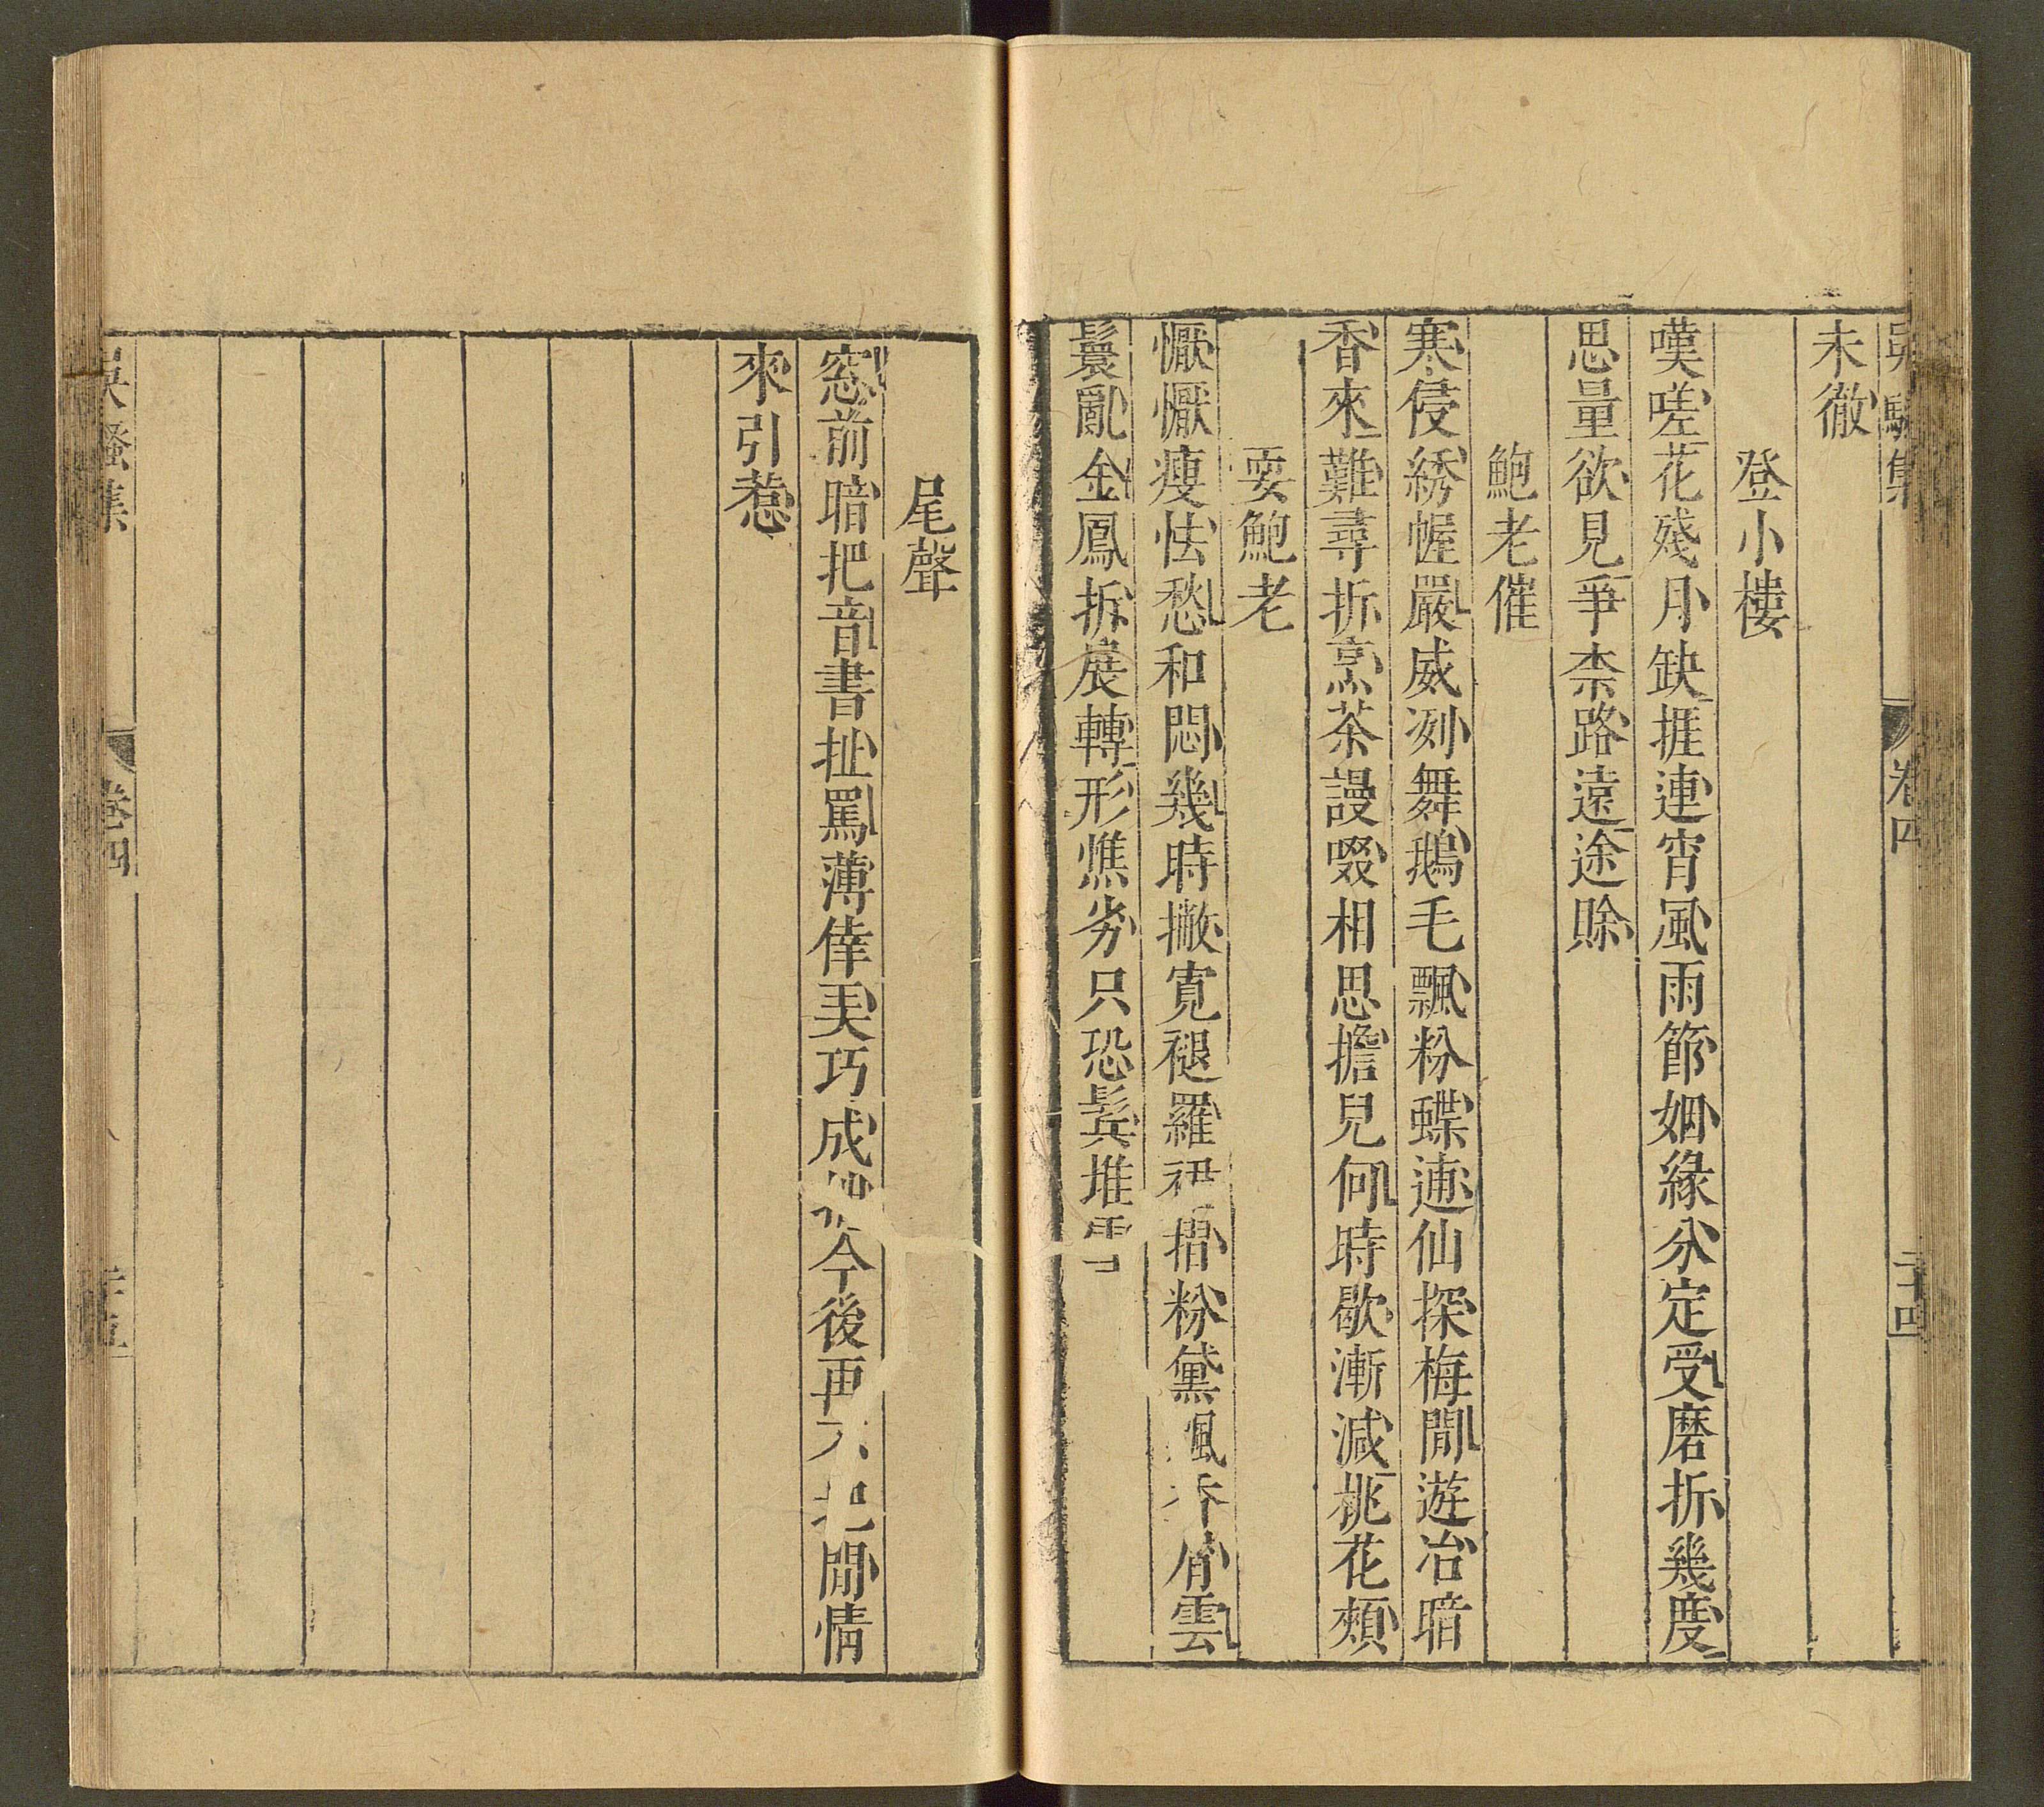 吳騷集 卷四 二十四
未徹
登小樓
嘆嗟花殘月缺捱連宵風雨節姻緣分定受磨折幾度
思量欲見爭柰路遠途賒
鮑老催
寒侵綉幄嚴威冽舞鵝毛飄粉蝶逋仙探梅閒遊冶暗
香來難尋折烹茶謾啜相思擔兒何時歇漸減桃花頰
耍鮑老
懨懨瘦怯愁和悶幾時撇寬褪羅裙搵粉黛飄香屑雲
鬟亂金鳳拆展轉形憔劣只恐鬂堆雪
尾聲
窓前暗把音書扯罵薄倖美巧成今後再不把閒情
來引惹
吳騷集 卷四 二十五